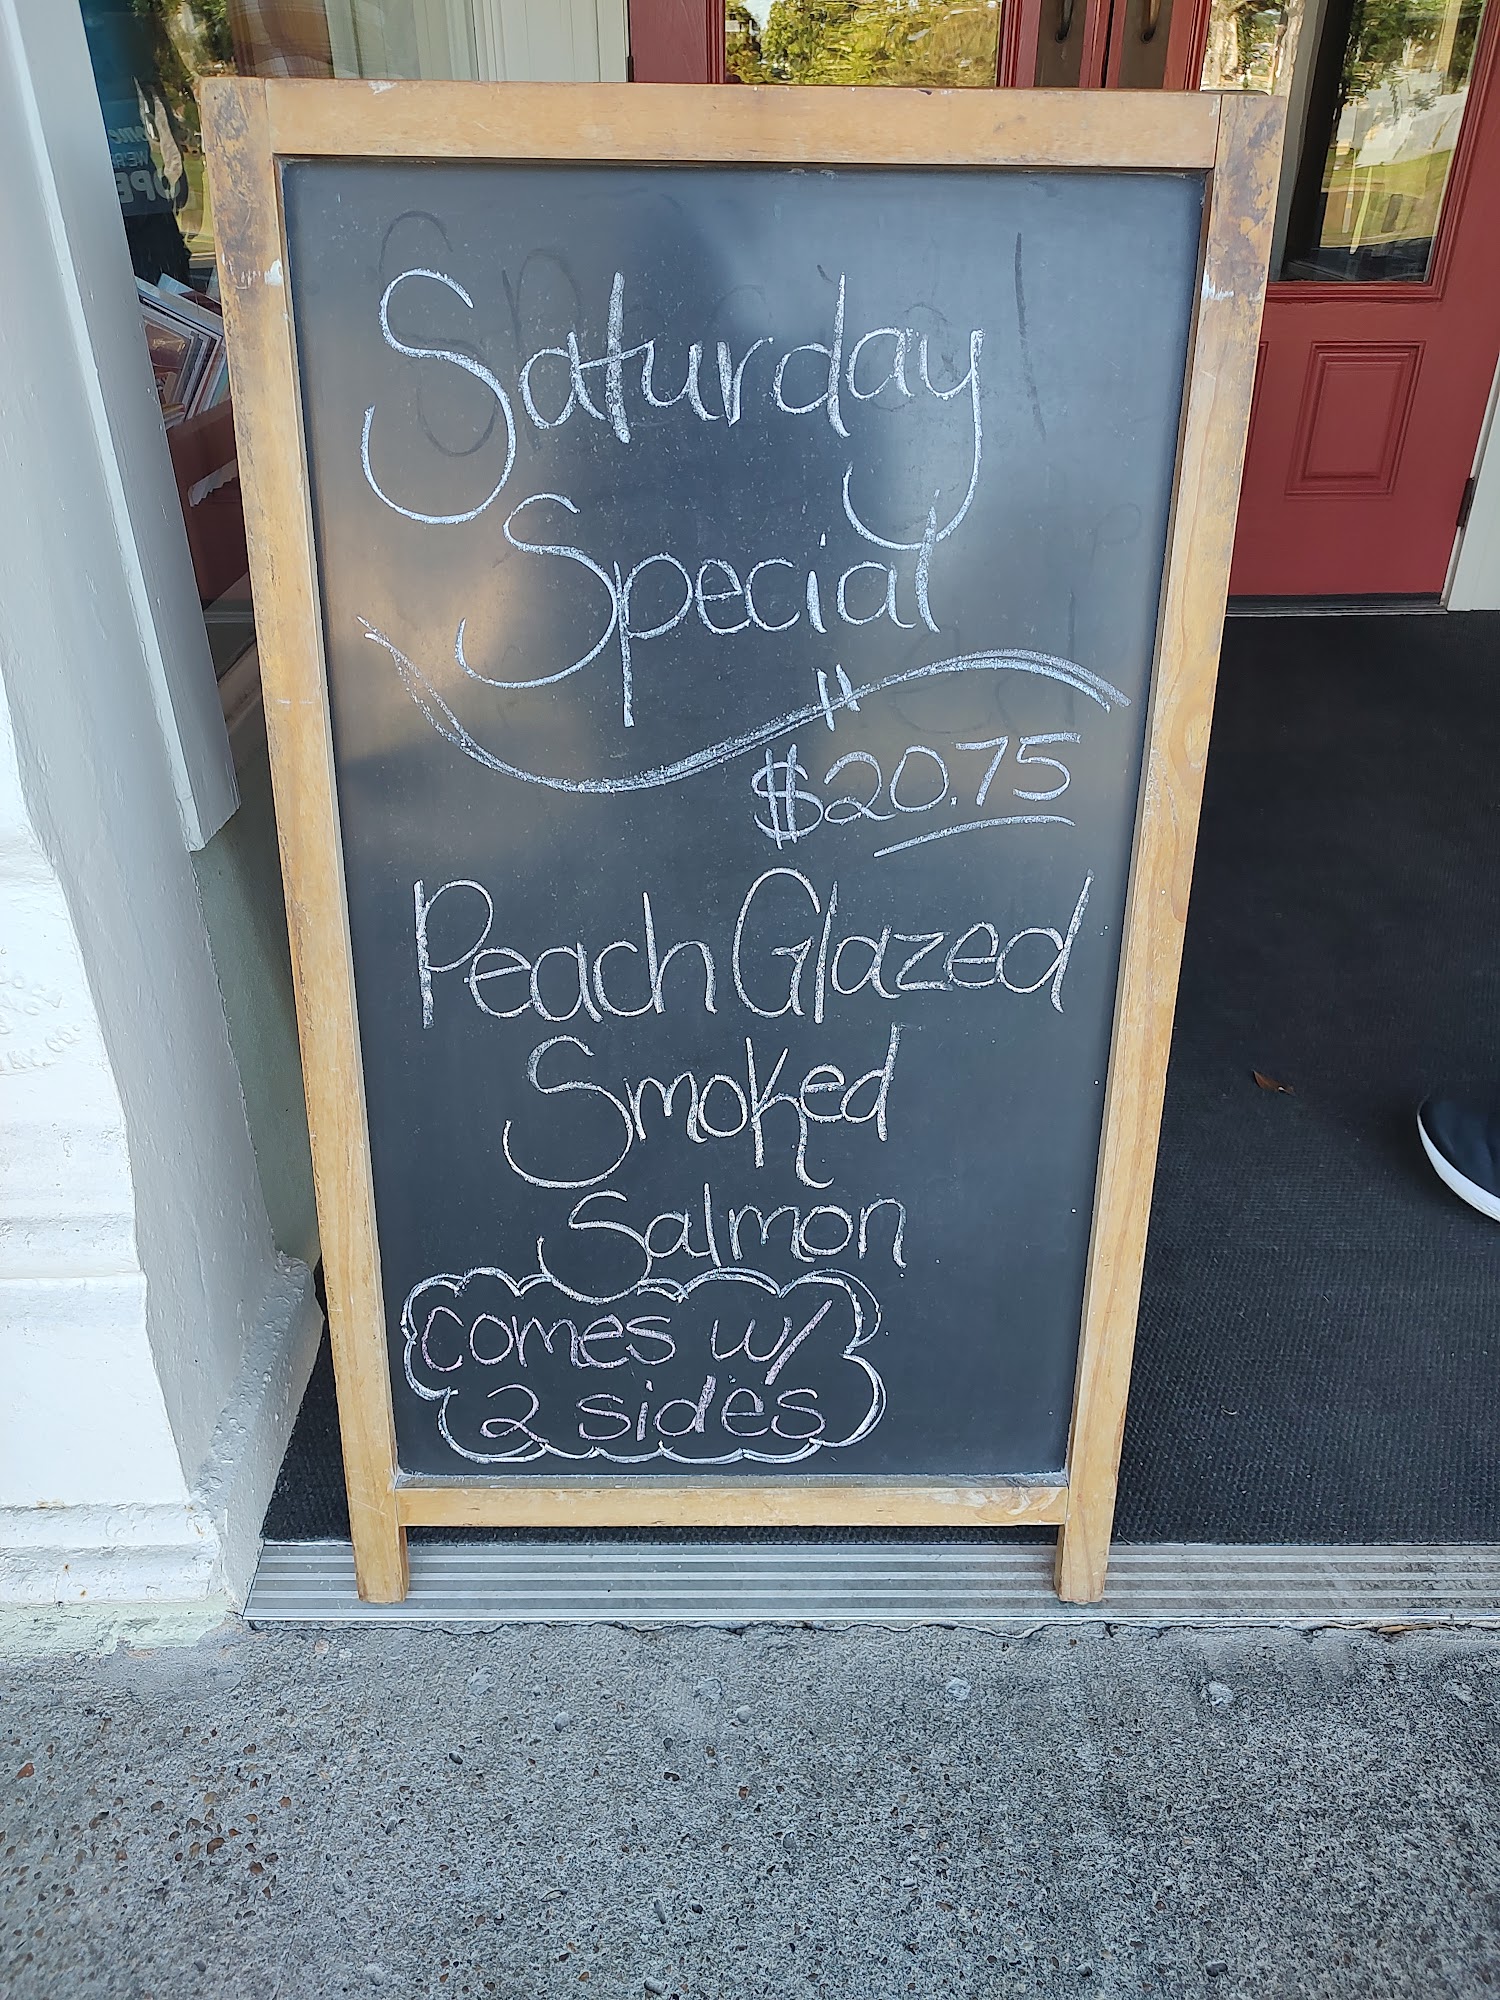 Saturday
Special
$20.75
Peach Glazed
Smoked
Salmon
comes w/
2 sides